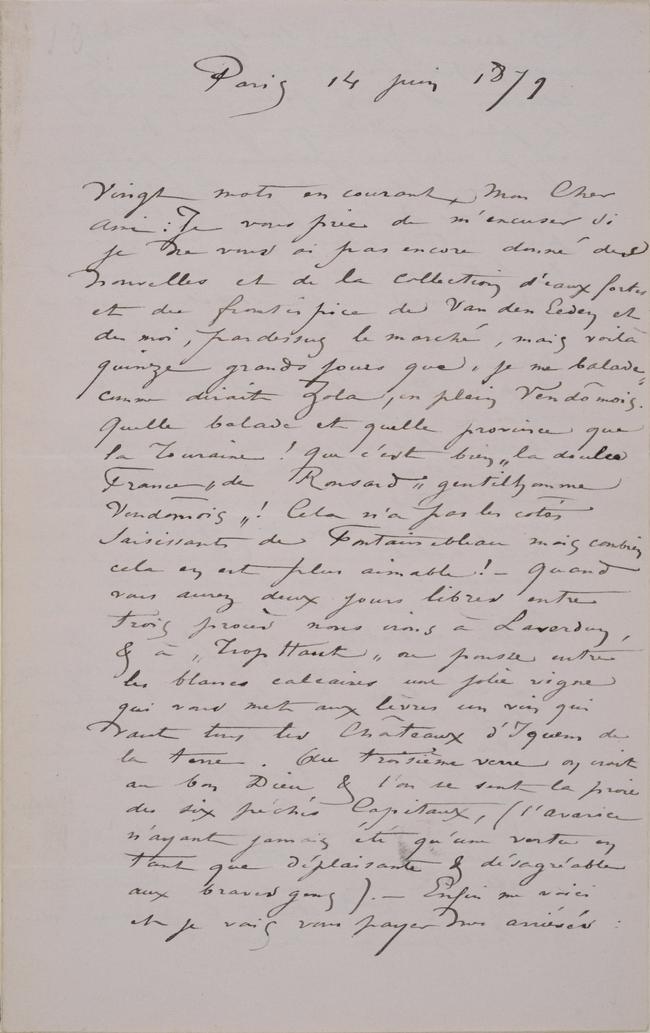 Paris 14 juin 1879
Vingt mots en courant, Mon Cher
Ami : Je vous prie de m'excuser si
je ne vous ai pas encore donné des
nouvelles et de la collection d'eaux fortes
et du frontispice de Van den Eeden et
de moi, pardessus le marché, mais voilà
quinze grands jours que „je me balade"
comme dirait Zola, en plein Vendômois.
Quelle balade et quelle province que
la Touraine ! Que c'est bien „la doulce
France„ de Ronsard „gentilhomme
Vendômois„! Cela n'a pas les côtés
saisissants de Fontainebleau mais combien
cela en est plus aimable ! – Quand
vous aurez deux jours libres entre
trois procès nous irons à Laverdin,
& à „Trop Haut„ où pousse entre
les blancs calcaires une jolie vigne
qui vous met aux lèvres un vin qui
vaut tous les Châteaux d'Iquem de
la terre. Au troisième verre on croit
au bon Dieu & l'on se sent la proie
des six péchés Capitaux, (l'avarice
n'ayant jamais été qu'une vertu en
tant que déplaisante & désagréable
aux braves gens). – Enfin me voici
et je vais vous payer mes arriérés :